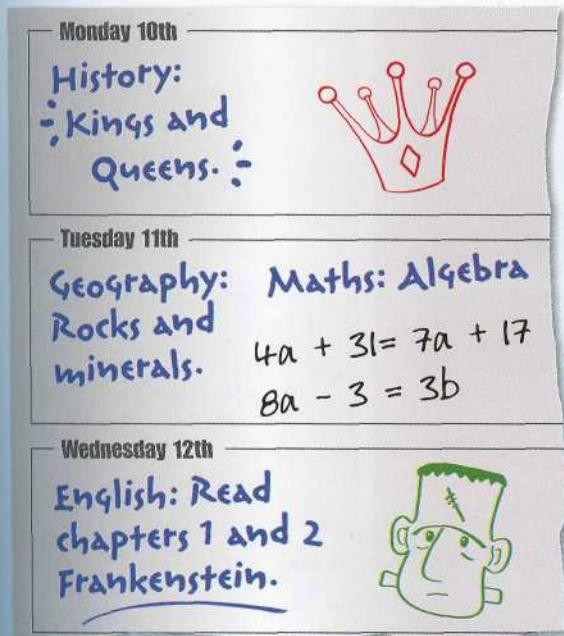 Monday 10th
History:
Kings and
Queens.
Tuesday 11th
Geography:
Rocks and
minerals.
Maths: Algebra
4a + 31= 7a + 17
8a - 3 = 3b
Wednesday 12th
English: Read
chapters 1 and 2
Frankenstein.